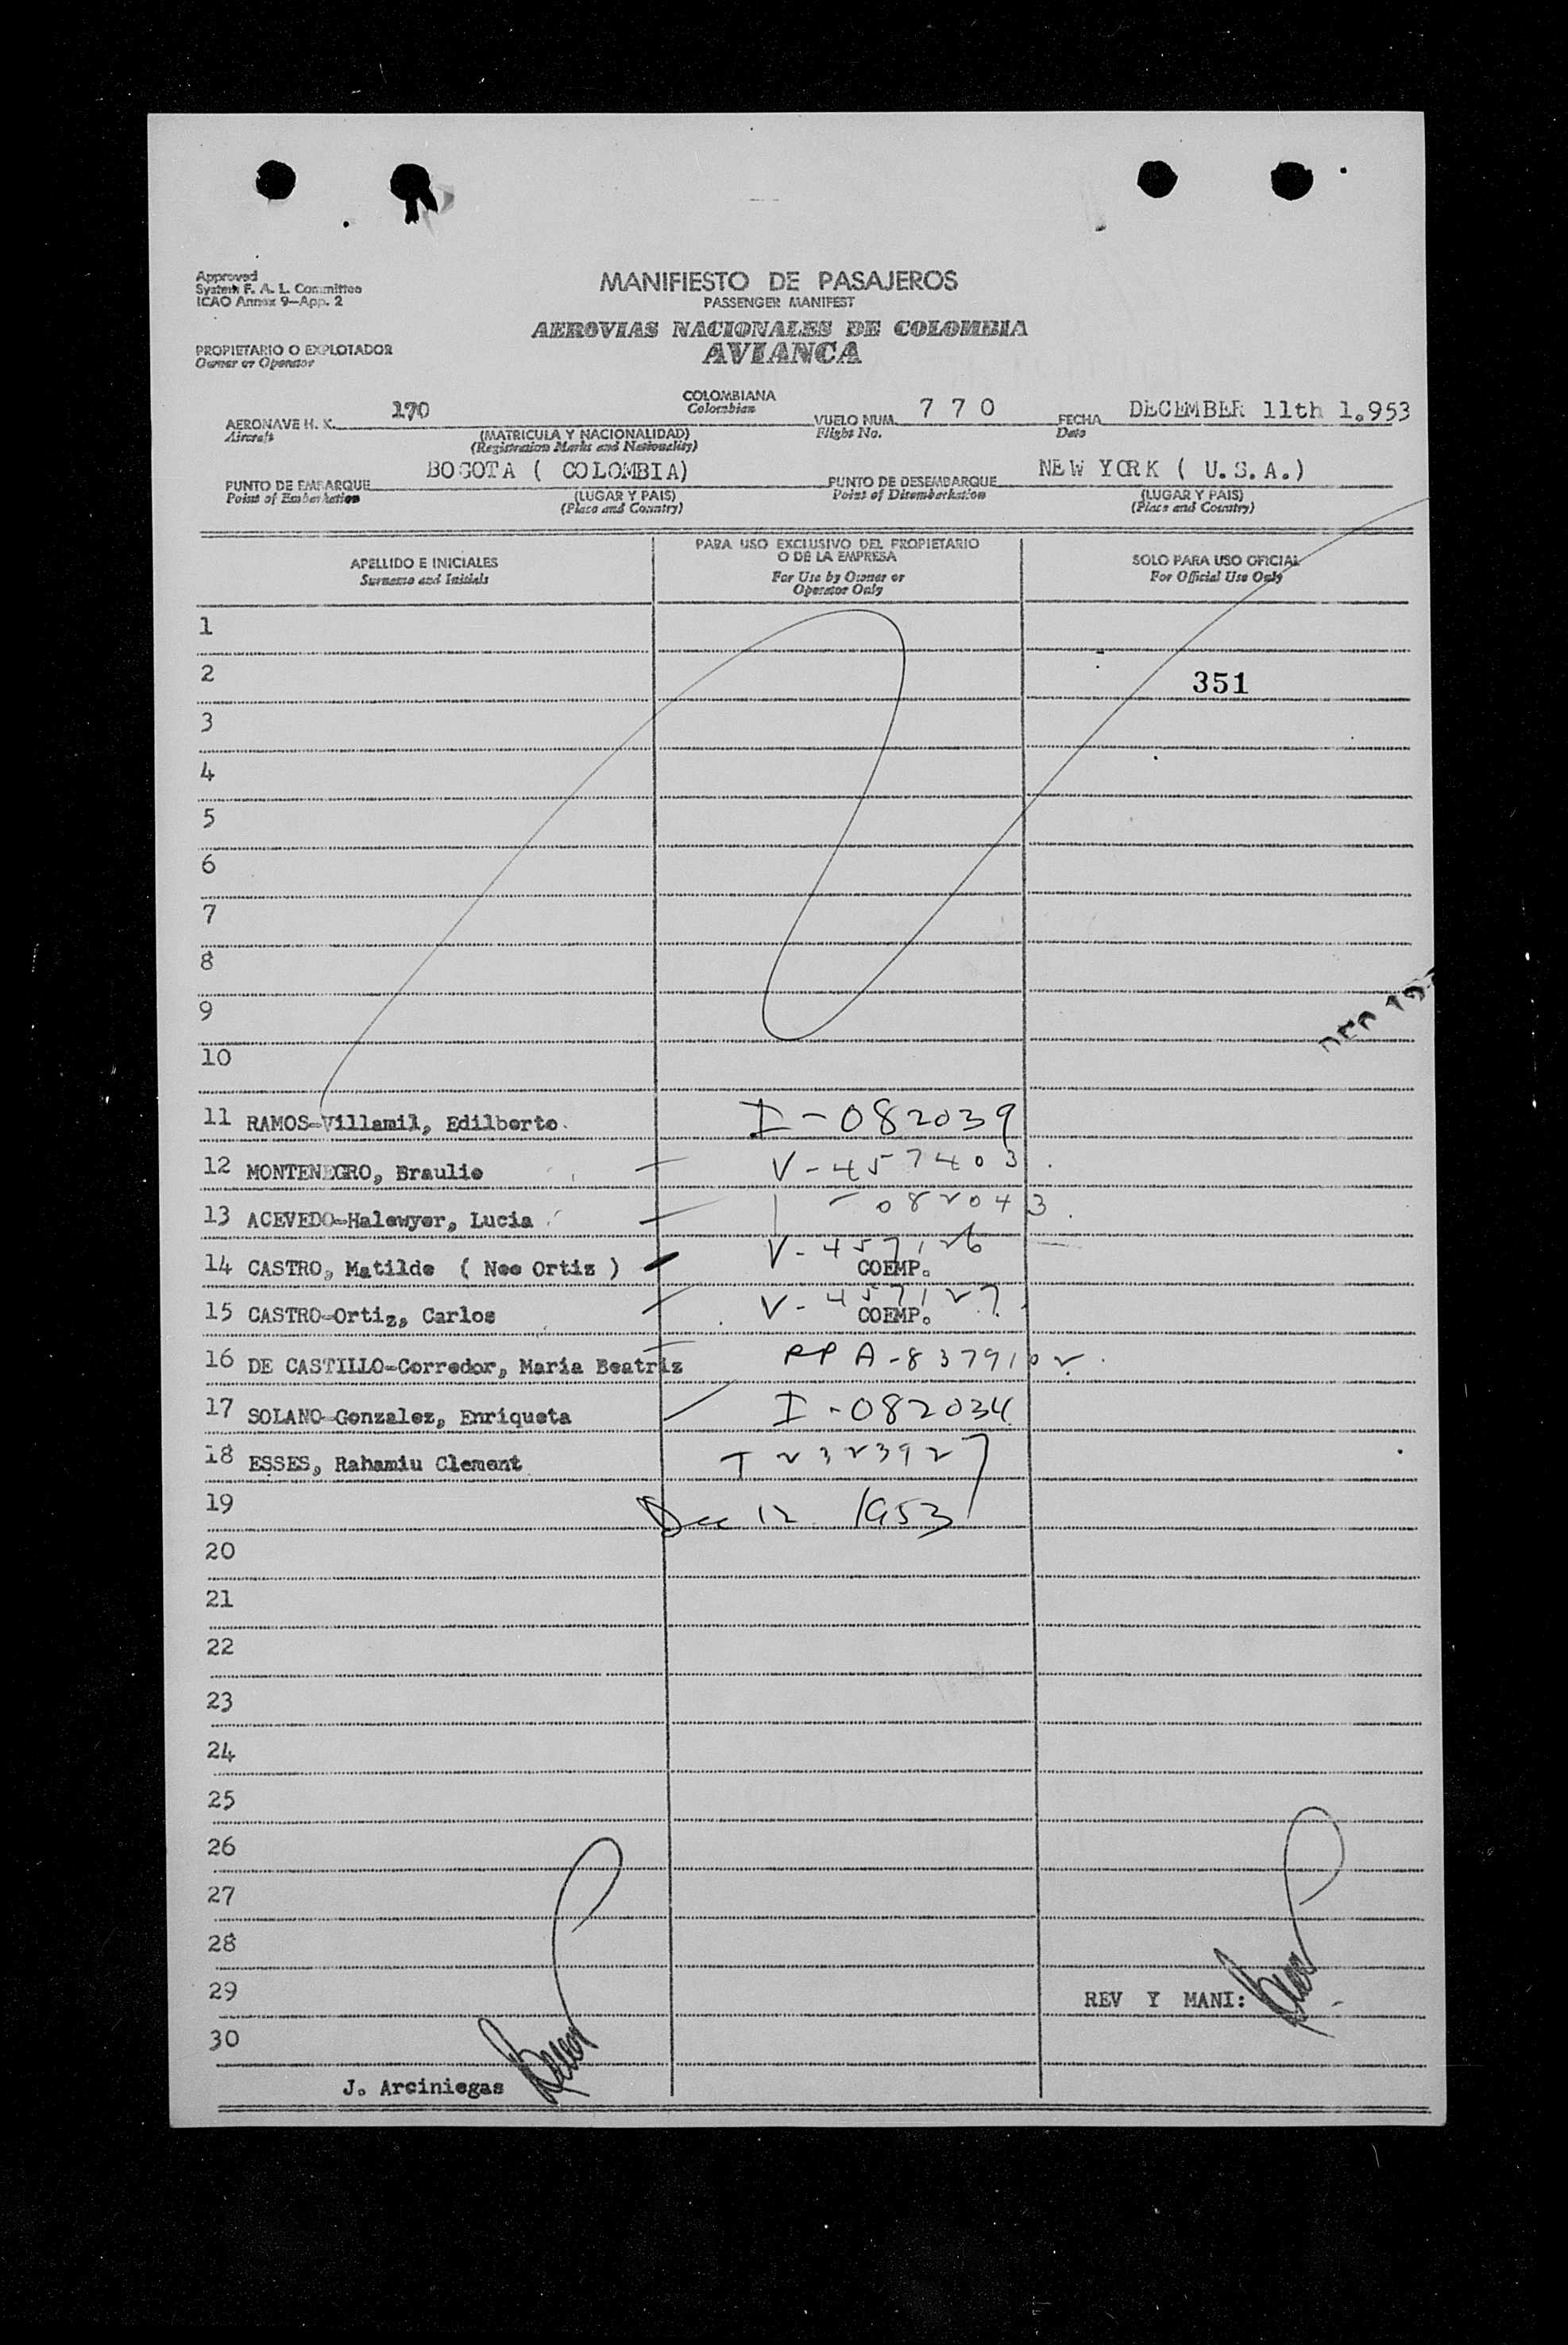 Approved
System F. A. L. Committee
ICAO Annex 9—App. 2
MANIFIESTO DE PASAJEROS
PASSENGER MANIFEST
AEROVIAS NACIONALES DE COLOMBIA
AVIANCA
PROPIETARIO O EXPLOTADOR
Owner or Operator
AERONAVE H. K. 170 COLOMBIANA VUELO NUM. 7 7 0 FECHA DECEMBER 11th 1.953
Aircraft Colombian Flight No. Date
(MATRICULA Y NACIONALIDAD)
(Registration Marks and Nationality)
PUNTO DE EMBARQUE BOGOTA ( COLOMBIA) PUNTO DE DESEMBARQUE NEW YORK ( U.S.A.)
Point of Embarkation (LUGAR Y PAIS) Point of Disembarkation (LUGAR Y PAIS)
(Place and Country) (Place and Country)
APELLIDO E INICIALES
Surname and Initials
PARA USO EXCLUSIVO DEL PROPIETARIO
O DE LA EMPRESA
For Use by Owner or
Operator Only
SOLO PARA USO OFICIAL
For Official Use Only
1
2 351
3
4
5
6
7
8
9
10
11 RAMOS-Villamil, Edilberto. I-082039
12 MONTENEGRO, Braulio V-457403
13 ACEVEDO-Halewyer, Lucia I-082043
14 CASTRO, Matilde ( Nee Ortiz ) V-457126
COEMP.
15 CASTRO-Ortiz, Carlos V-457127
COEMP.
16 DE CASTILLO-Corredor, Maria Beatriz PPA-8379102
17 SOLANO-Gonzalez, Enriqueta I-082034
18 ESSES, Rahamiu Clement T 2323927
19 Dec 12 1953
20
21
22
23
24
25
26
27
28
29 REV Y MANI:
30
J. Arciniegas